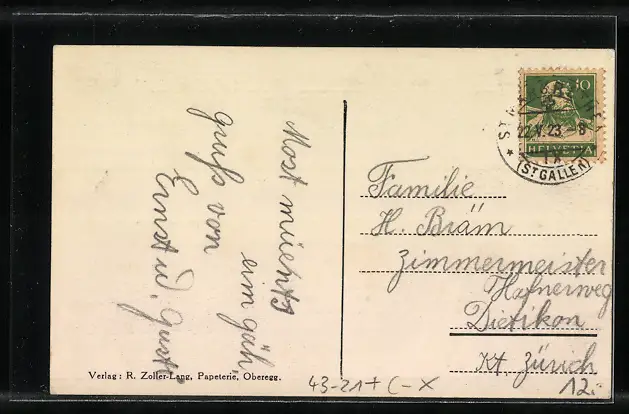 Most
eim gäh
gruß von
Ernst u. Gusti
10
22.V.23.-8
HELVETIA
(ST GALLEN)
Familie
H. Bräm
Zimmermeister
Hafnerweg
Dietikon
Kt. Zürich
Verlag: R. Zoller-Lang, Papeterie, Oberegg.
43-21+ C-X
12.-